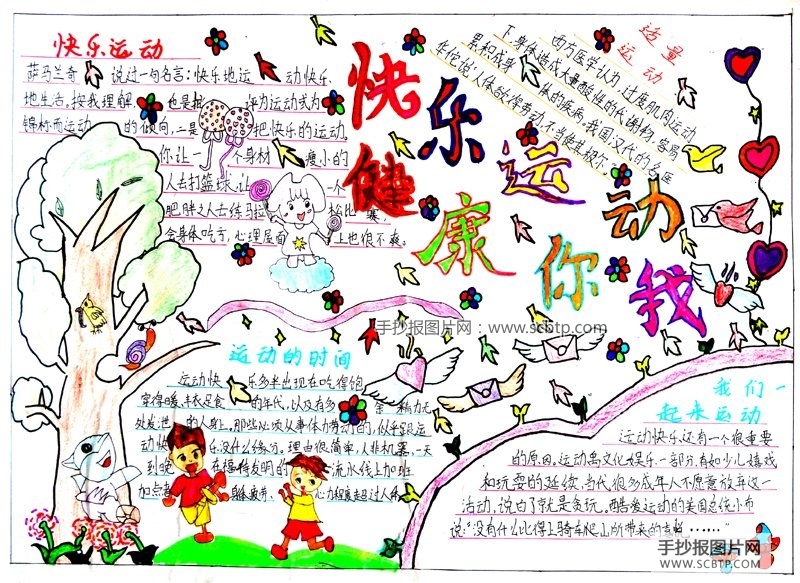 快乐运动
萨马兰奇 说过一句名言：快乐地运 动快乐
地生活，按我理解 也是把 评为运动式为
锦标而运动 的倾向，二是 把快乐的运动，
你让一 个身材 瘦小的
人去打篮球，让 一个
肥胖之人士练马拉 松比赛，
会身体吃亏，心理层面 上也很不爽。
快乐运动
健康你我
适量
运动
西方医学认为，过度肌肉运动
下身体造成大量酸性的代谢物，容易
累和成身 体的疾病，我国汉代的名医
华佗说：人体欲得劳动，不当使其极尔
手抄报图片网：www.scbtp.com
运动的时间
运动快 乐多半出现在吃得饱
穿得暖，丰衣足食 的年代，以及有多 余 精力无
处发泄 的人身上，那些必须从事体力劳动的，似乎跟运
动快 乐没什么缘分。理由很简单，人非机器，一天
到晚 在福特发明的 流水线上加班
加点者 身体疲劳、 心力程度超过人体
我们一
起来运动
运动快乐还有一个很重要
的原因。运动属文化娱乐一部分，有如少儿嬉戏
和玩耍的延续，当代很多成年人不愿意放弃这一
活动，说白了就是贪玩，酷爱运动的美国总统小布
说：“没有什么比得上骑车爬山所带来的
手抄报图片网
WWW.SCBTP.COM